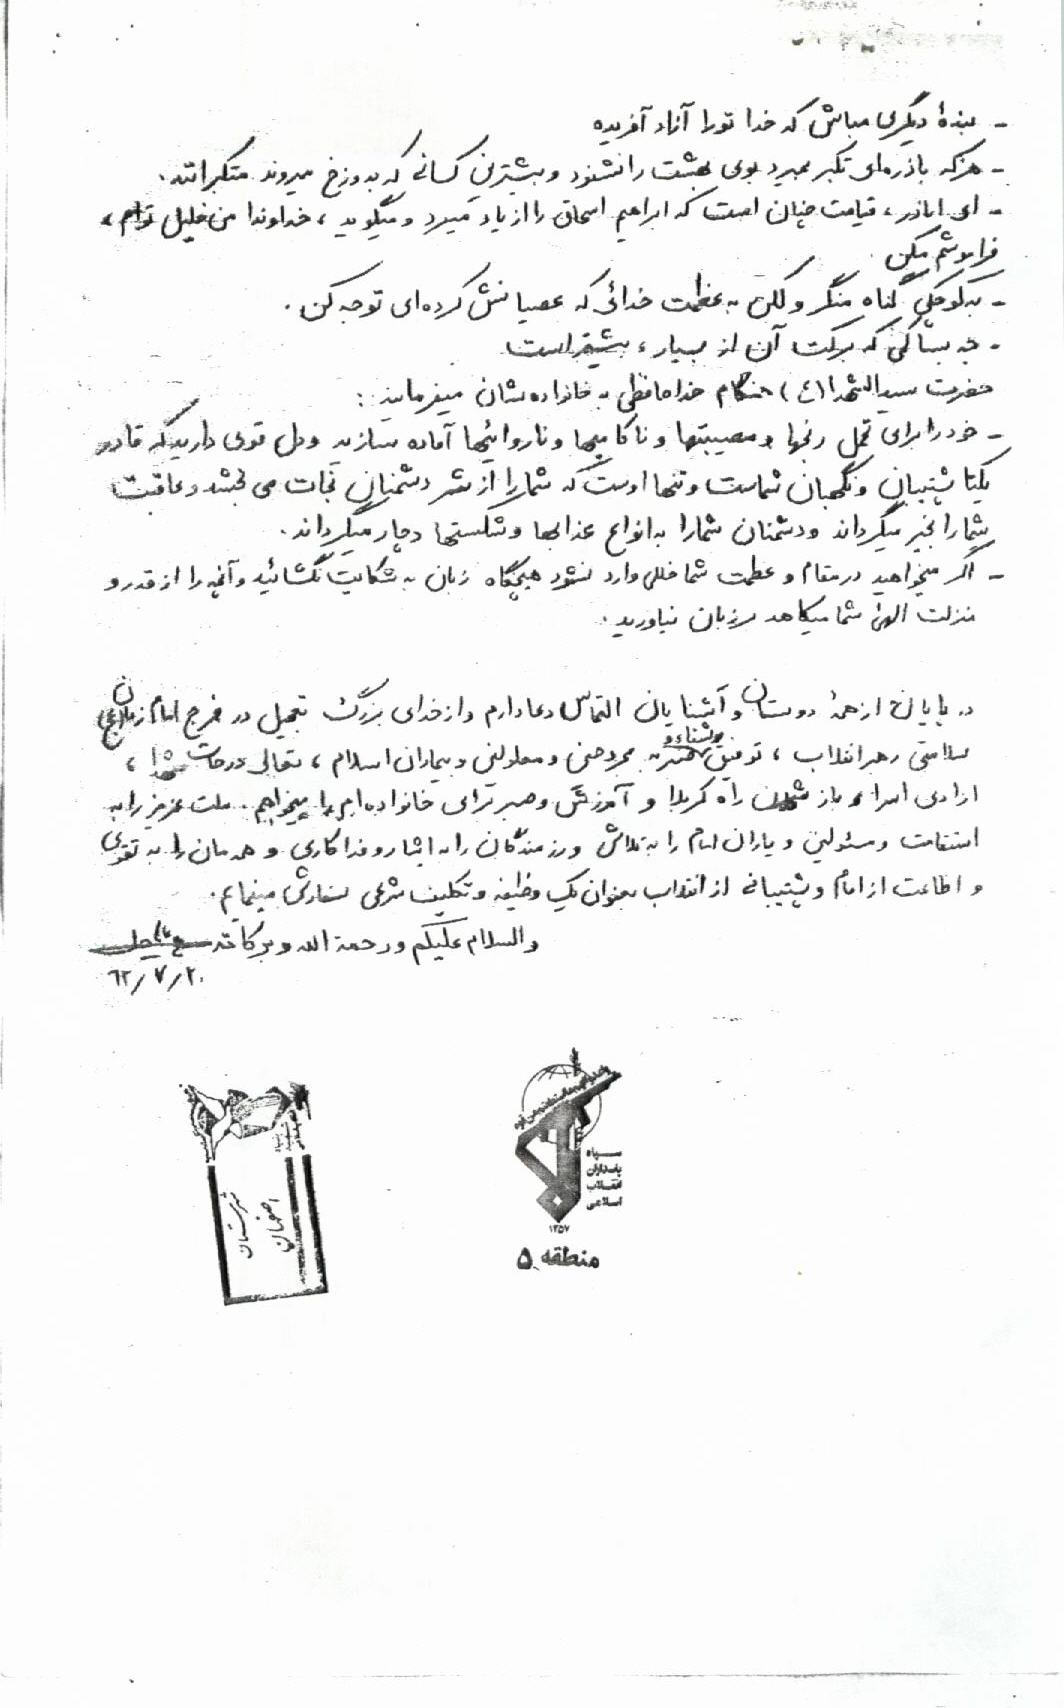 - بندهٔ دیگری مباش که خدا تورا آزاد آفریده
- هرکه با ذره‌ای تکبر بمیرد بوی بهشت را نشنود و بیشترین کسانی که به دوزخ میروند متکبرانند.
- ای اباذر، قیامت چنان است که ابراهیم اسحاق را از یاد میبرد و میگوید، خداوندا من خلیل توام،
فراموشم مکن
- به کوچکی گناه منگر ولکن به عظمت خدائی که عصیانش کرده‌ای توجه کن.
- چه بسا کمی که برکت آن از بسیار، بیشتر است
حضرت سیدالشهدا (ع) هنگام خداحافظی به خانواده‌شان میفرمایند:
- خود را برای تحمل رنجها و مصیبتها و ناکامیها و ناروائیها آماده سازید و دل قوی دارید که قادر
یکتا پشتیبان و نگهبان شماست و تنها اوست که شما را از شر دشمنان نجات می بخشد و عاقبت
شما را بخیر میگرداند و دشمنان شما را به انواع عذابها و شکستها دچار میگرداند.
- اگر میخواهید در مقام و عظمت شما خللی وارد نشود هیچگاه زبان به شکایت نگشائید و آنچه را از قدر و
منزلت الهیٔ شما میکاهد بر زبان نیاورید.
در پایان از همهٔ دوستان و آشنایان التماس دعا دارم و از خدای بزرگ تعجیل در فرج امام زمان (عج)
سلامتی رهبر انقلاب، توفیق به مجروحین و معلولین و بیماران اسلام، تعالی درجات شهدا،
ازادی اسرا و باز شدن راه کربلا و آمرزش و صبر برای خانواده‌ام را میخواهم. ملت عزیز را به
استقامت و مسئولین و یاران امام را به تلاش و رزمندگان را به ایثار و فداکاری و همه‌مان را به تقوی
و اطاعت از امام و پشتیبانی از انقلاب بعنوان یک وظیفه و تکلیف شرعی سفارش مینمایم.
والسلام علیکم و رحمة الله و برکاته
۶۲/۷/۲۰
سپاه
پاسداران
انقلاب
اسلامی
۱۳۵۷
منطقه ۵
شهرستان
اصفهان